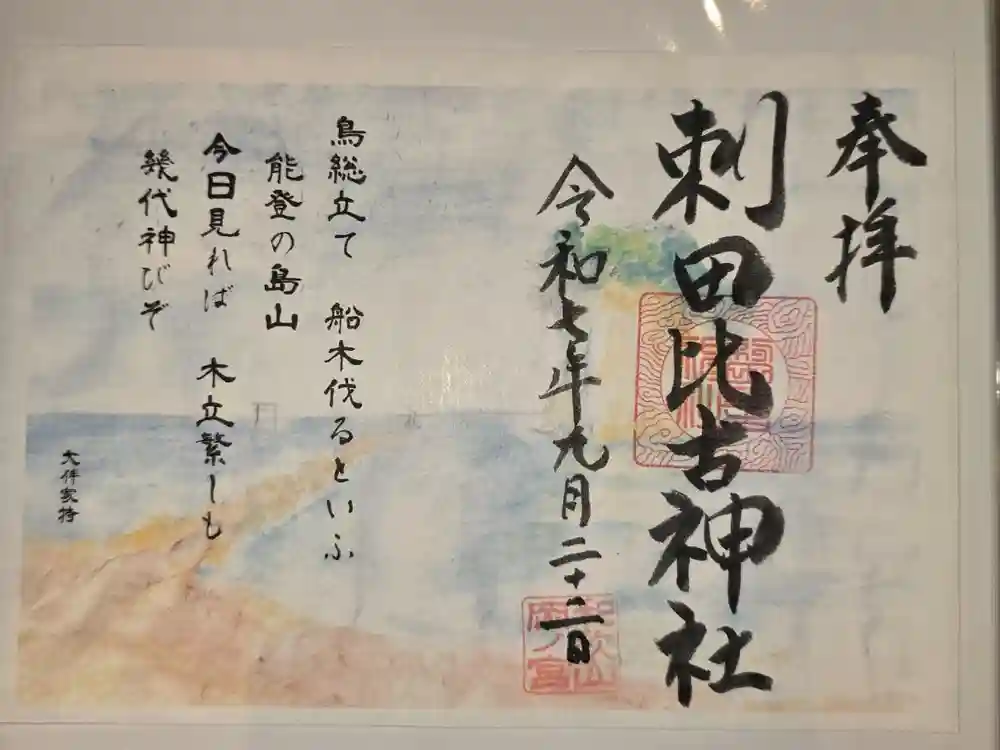 奉拝
刺田比古神社
令和七年九月二十二日
和歌山
岡ノ宮
鳥総立て 船木伐るといふ
能登の島山
今日見れば 木立繁しも
幾代神びぞ
大伴家持